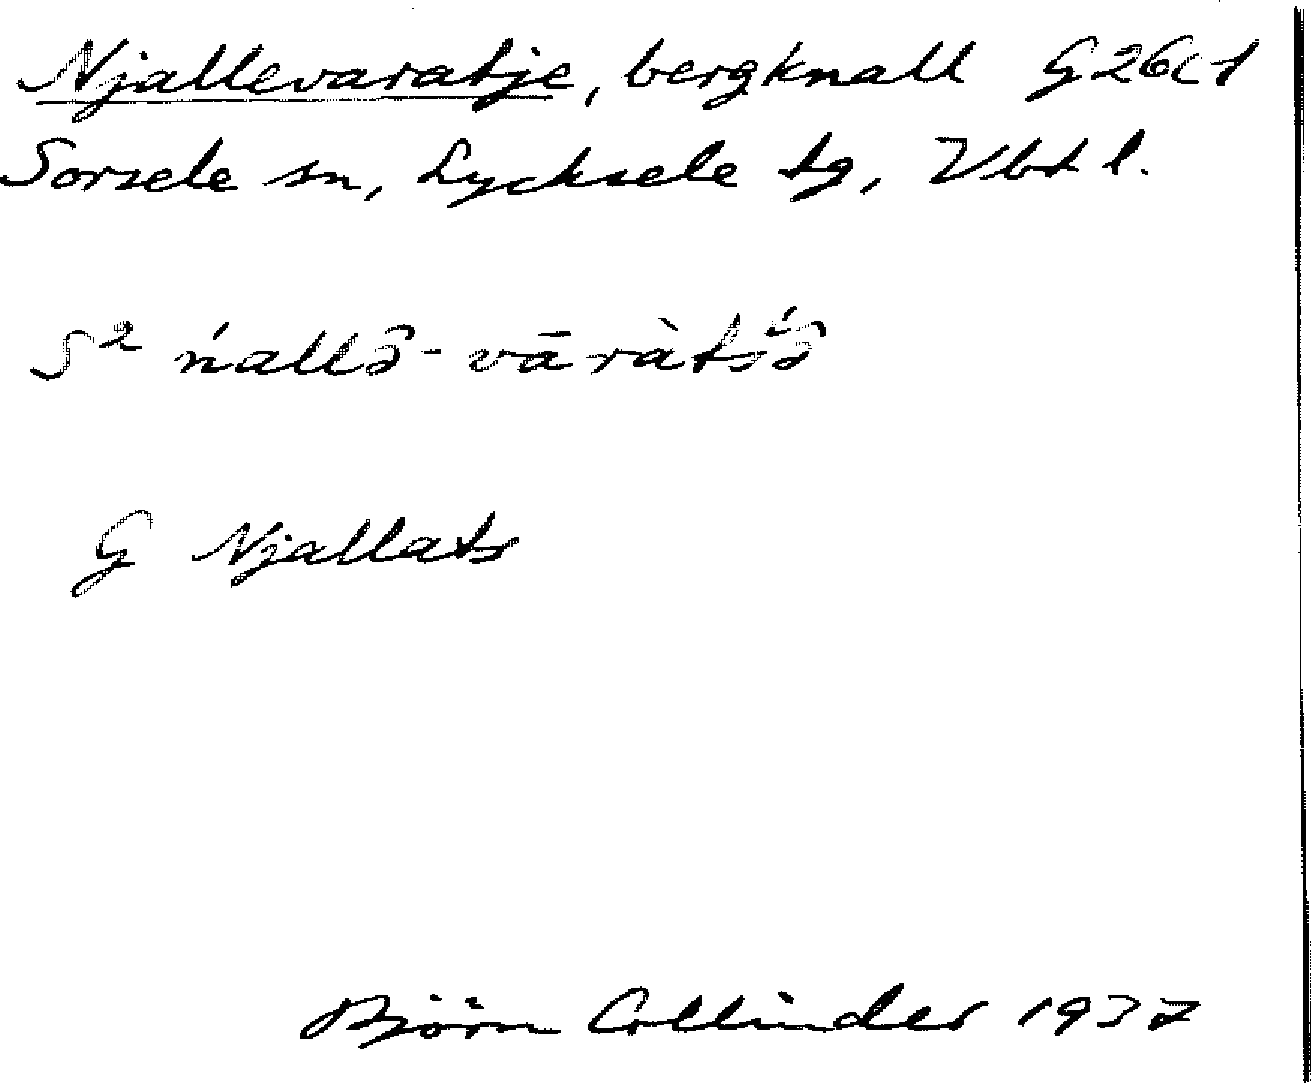 Njallevaratje, bergknall G26c1
Sorsele sn, Lycksele tg, Vbt l.
S² ńallə̑-vāràtśə̑
G Njallats
Björn Collinder 1937